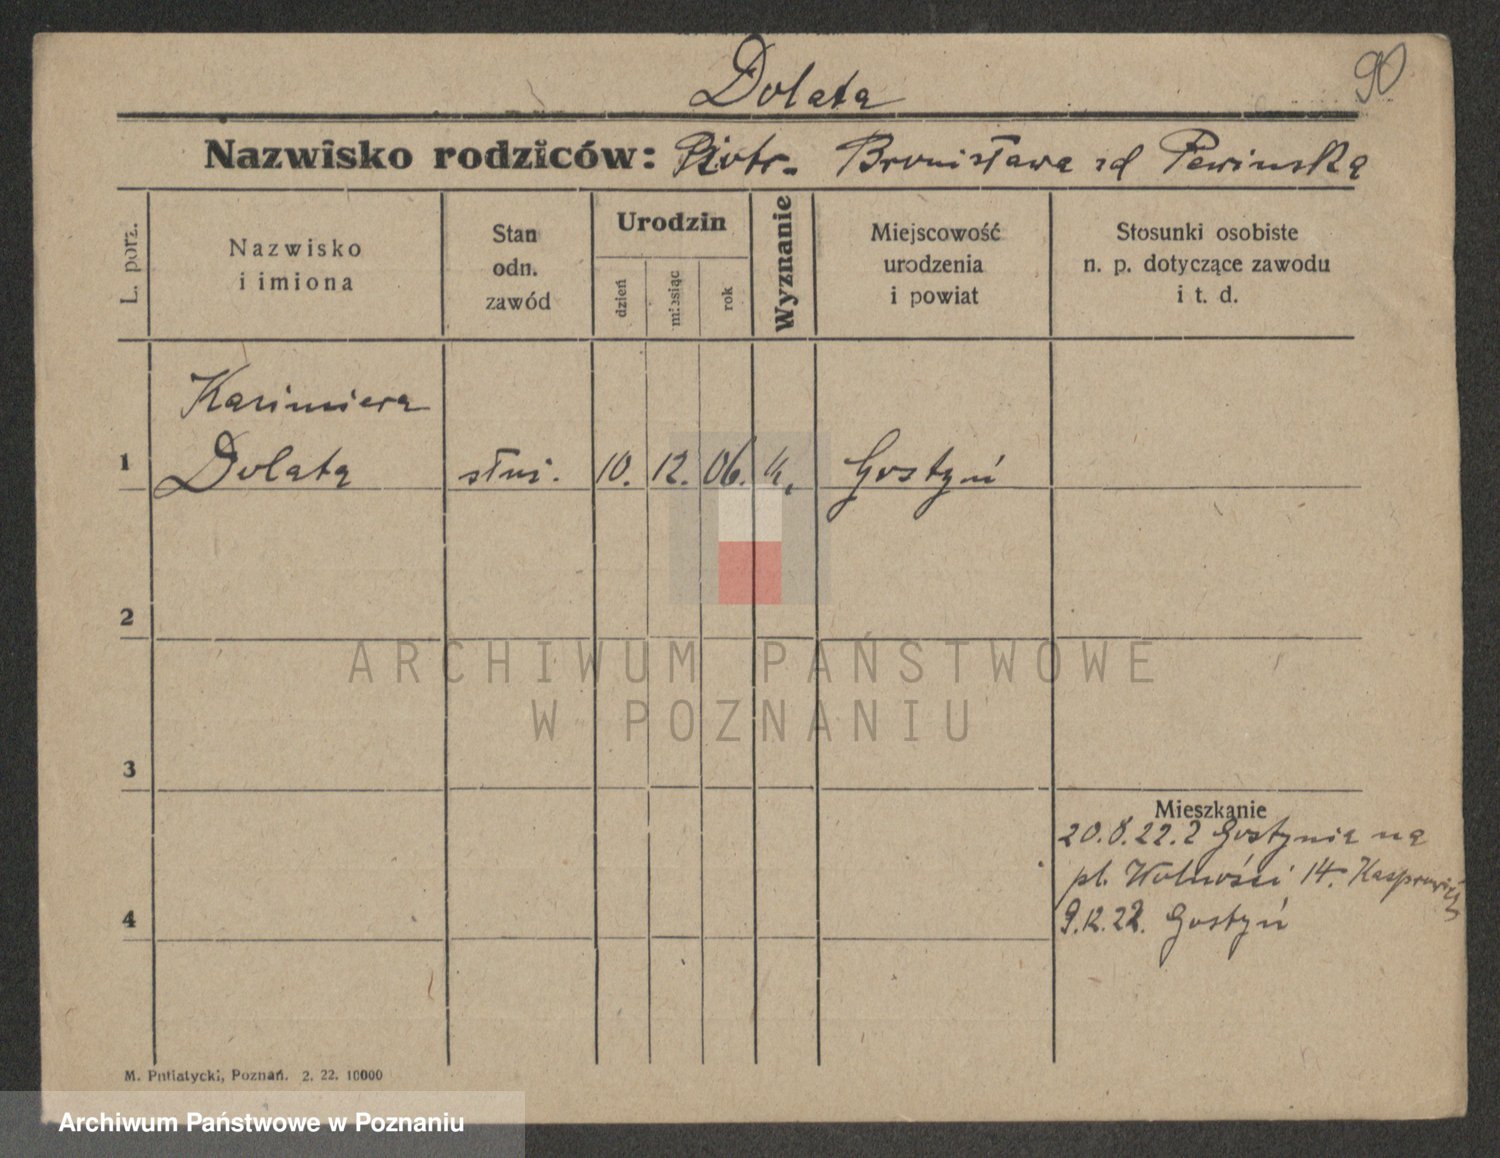 Dolata
90
Nazwisko rodziców: Piotr. Bronisława zd Pewinska
L. porz.
Nazwisko
i imiona
Stan
odn.
zawód
Urodzin
dzień
miesiąc
rok
Wyznanie
Miejscowość
urodzenia
i powiat
Stosunki osobiste
n. p. dotyczące zawodu
i t. d.
Kazimiera
1 Dolata służ. 10. 12. 06. k. Gostyń
2
3
4
Mieszkanie
20.8.22. z Gostynia na
pl. Wolności 14. Kasprowicz
9.12.22. Gostyń
ARCHIWUM PAŃSTWOWE
W POZNANIU
M. Putiatycki, Poznań. 2. 22. 10000
Archiwum Państwowe w Poznaniu